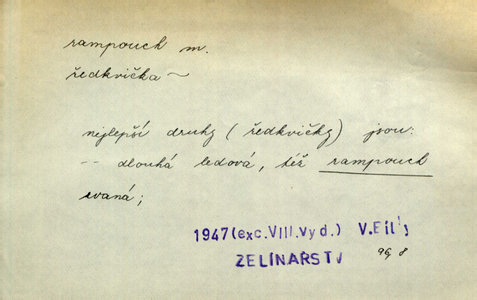 rampouch m.
ředkvička ~
nejlepší druhy (ředkvičky) jsou:
-- dlouhá ledová, též rampouch
zvaná;
1947 (exc.VIII.vyd.) V.Eil's
ZELINAŘSTV
96, 8